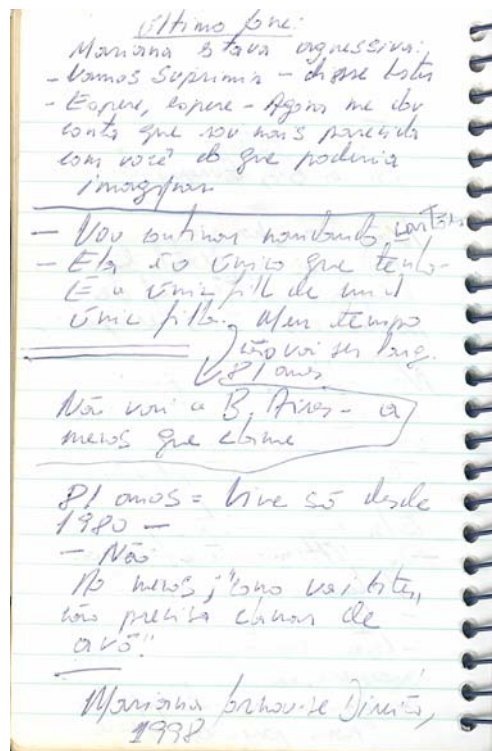 Último fone:
Mariana estava agressiva:
- Vamos suprimir - disse Ester
- Espere, espere - Agora me dou
conta que sou mais parecida
com você do que poderia
imaginar
- Vou continuar mandando cartas
- Ela é o único que tenho-
É a única filha de minha
única filha. Meu tempo
não vai ser longo.
81 anos
Não vai a B. Aires - a
menos que chame
81 anos = Vive só desde
1980 -
- Não
Ao menos, "como vai Ester,
não precisa chamar de
avó."
Mariana formou-se Direito,
1998